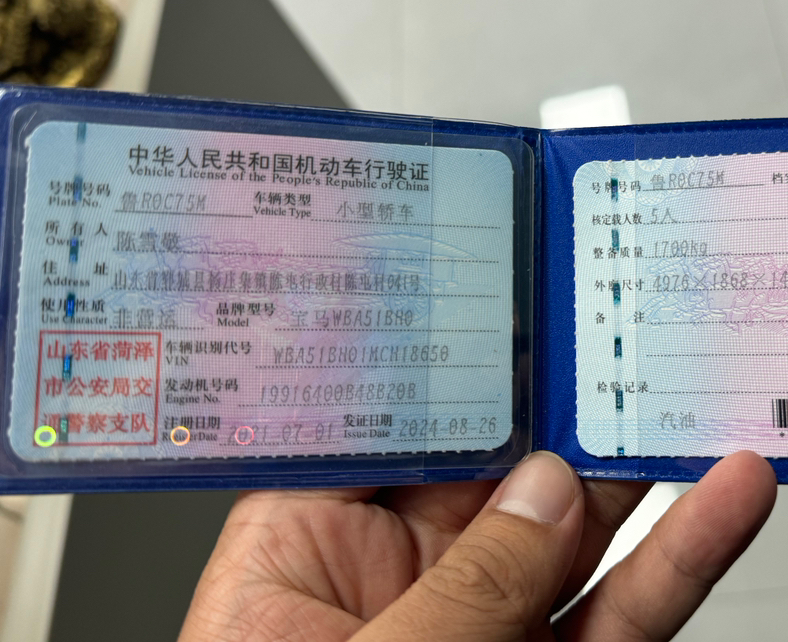 中华人民共和国机动车行驶证
Vehicle License of the People's Republic of China
号牌号码 鲁R0C75M 车辆类型 小型轿车
Plate No. Vehicle Type
所有人 陈雪敬
Owner
住址 山东省鄄城县 集镇陈屯行政村陈屯村041号
Address
使用性质 非营运 品牌型号 宝马WBA51BH0
Use Character Model
山东省菏泽
市公安局交
通警察支队
车辆识别代号 WBA51BH01MCH18650
VIN
发动机号码 19916400B48B20B
Engine No.
注册日期 2021-07-01 发证日期 2024-08-26
Register Date Issue Date
号牌号码 鲁R0C75M
核定载人数 5人
整备质量 1700kg
外廓尺寸 4976×1868×14
备注
检验记录
汽油